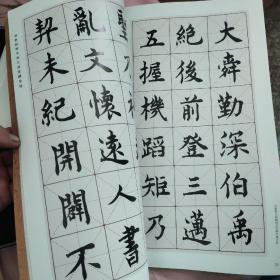 大舜勤深伯禹
絕後前登三邁
五握機蹈矩乃
聖
亂文懷遠人書
契未紀開闢不